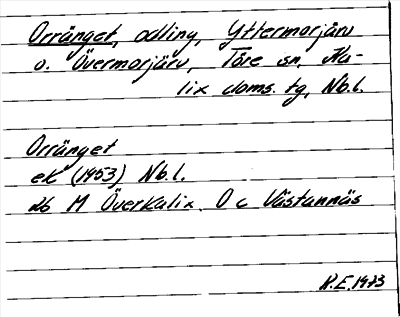 Orränget, odling, Yttermorjärv
o. Övermorjärv, Töre sn, Ka-
lix doms. tg, Nb.l.
Orränget
ek (1953) Nb.l.
db M Överkalix. O c Västannäs
R.E. 1973